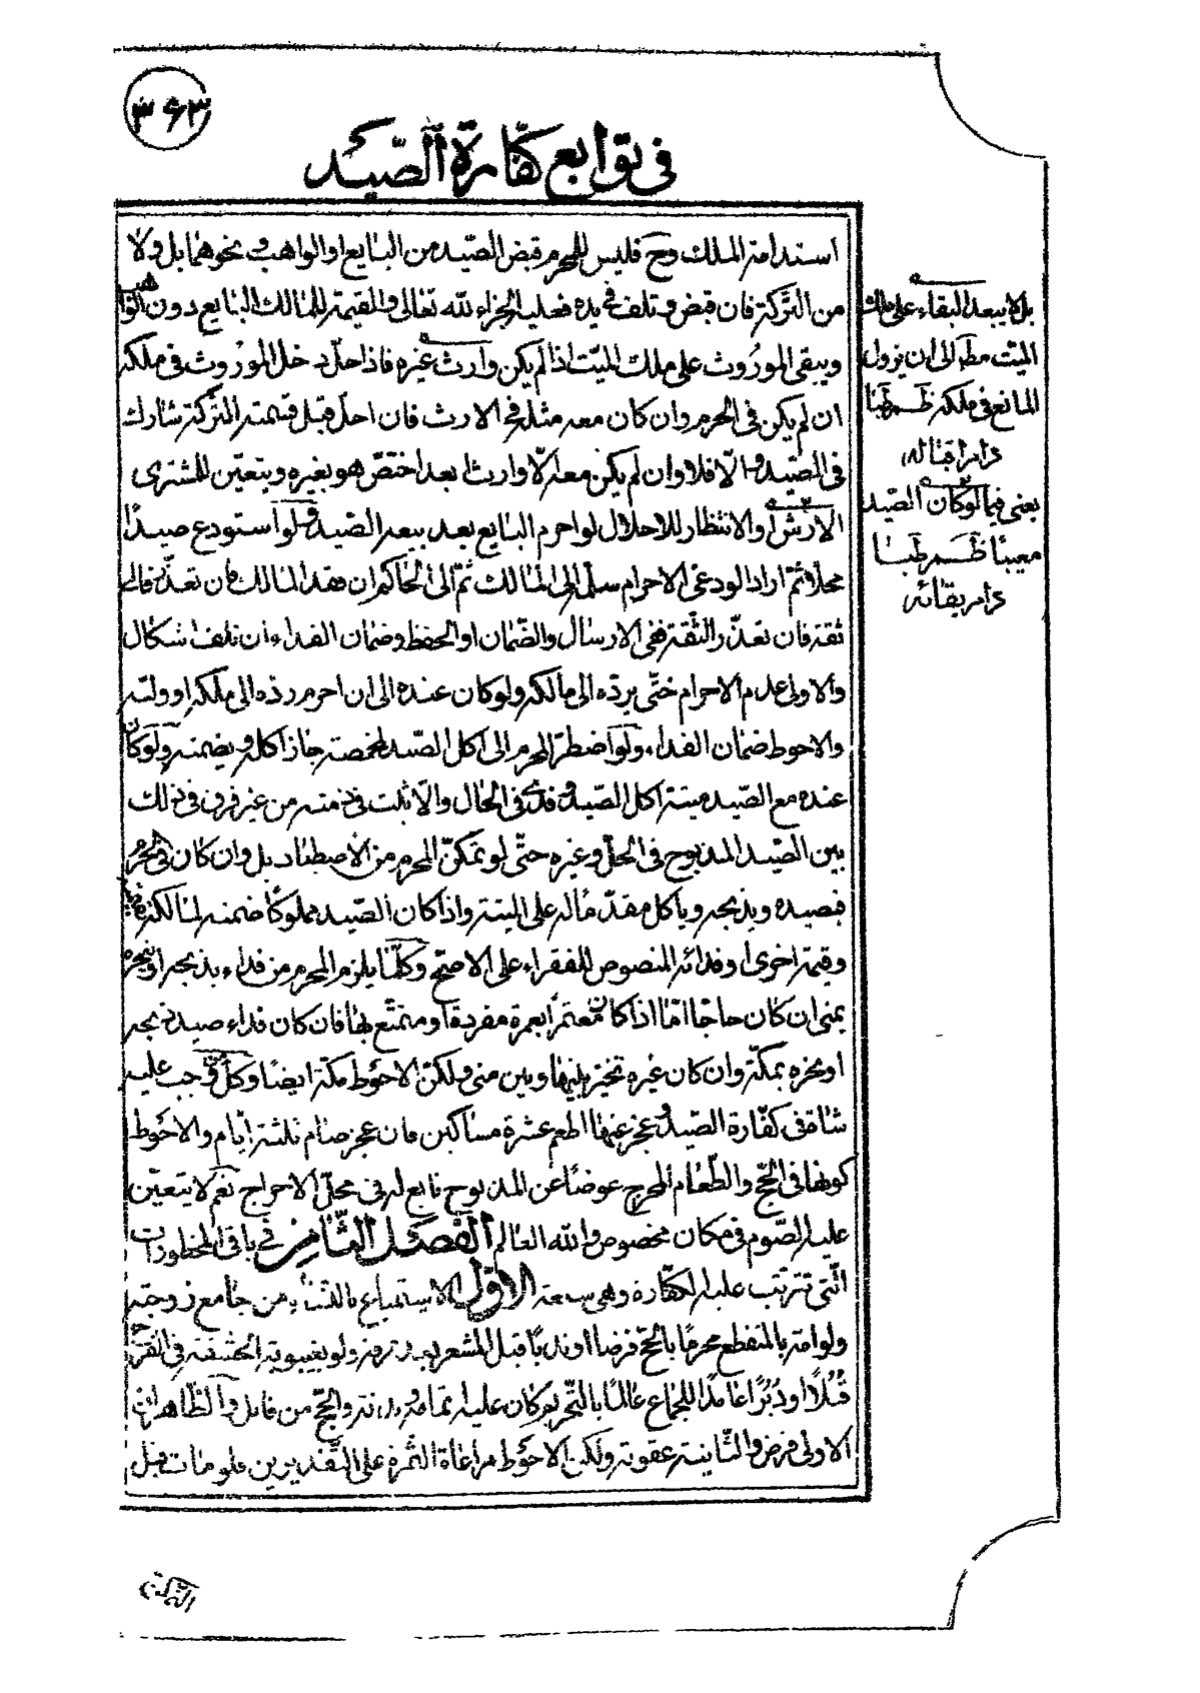 ٣۶٣
فى توابع كفارة الصّيد
استدامة الملك وح فليس للمحرم قبض الصّيد من البايع او الواهب و نحوهما بل ولا
من التّركة فان قبض و تلف فى يده فعليه الجزاء لله تعالى و القيمة للمالك البايع دون الواهب
ويبقى الموروث على ملك الميّت اذا لم يكن وارث غيره فاذا احلّ دخل الموروث فى ملكه
ان لم يكن فى الحرم وان كان معه مثله فى الارث فان احلّ قبل قسمته التّركة شارك
فى الصّيد و الّا فلا وان لم يكن معه الّا وارث ابعد اختصّ هو بغيره ويتعيّن للمشترى
الارش او الانتظار للاحلال لو احرم البايع بعد بيعه الصّيد و لو استودع صيدًا
محلّا ثمّ اراد الودعى الاحرام سلّمه الى المالك ثمّ الى الحاكم ان فقد المالك فان تعذّر فالى
ثقة فان تعذّر الثّقة ففى الارسال والضّمان او الحفظ وضمان الفداء ان تلف اشكال
والاولى عدم الاحرام حتّى يردّه الى مالكه ولو كان عنده الى ان احرم ردّه الى ملكه او وليّه
والاحوط ضمان الفداء ولو اضطرّ المحرم الى اكل الصّيد لمخمصة جاز اكله و يضمنه ولو كان
عنده مع الصّيد ميتة اكل الصّيد و فدى فى الحال والّا ثبت فى ذمته من غير فرق فى ذلك
بين الصّيد المذبوح فى الحلّ وغيره حتّى لو تمكّن المحرم من الاصطياد بل وان كان فى الحرم
فيصيده ويذبحه وياكل مقدّما له على الميتة واذا كان الصّيد مملوكًا ضمنه لمالكه
وقيمة اخرى او فدائه المنصوص للفقراء على الاصحّ وكلّما يلزم المحرم من فداء يذبحه او ينحره
بمنى ان كان حاجّا امّا اذا كان معتمرًا بعمرة مفردة او متمتّع بها فان كان فداء صيد ذبحه
او نحره بمكّة وان كان غيره تخيّر بينها وبين منى ولكن الاحوط مكّة ايضًا وكلّ من وجب عليه
شاة فى كفّارة الصّيد و عجز عنها اطعم عشرة مساكين فان عجز صام ثلثة ايّام والاحوط
كونها فى الحجّ والطّعام المخرج عوضًا عن المذبوح تابع له فى محلّ الاخراج نعم لا يتعيّن
عليه الصّوم فى مكان مخصوص والله العالم الفصل الثّامن فى باقى المحظورات
الّتى تترتّب عليه الكفّارة وهى سبعة الاوّل الاستمتاع بالنّساء من جامع زوجته
ولو امته بالمنقطع محرمًا بالحجّ فرضا او ندبًا قبل المشعر بعد عرفة ولو بغيبوبة الحشفة فى الفرج
قُبُلًا او دُبُرًا عامدًا للجماع عالمًا بالتّحريم كان عليه تمامه و بدنة والحجّ من قابل والظّاهر ان
الاولى فرض والثّانية عقوبة ولكن الاحوط مراعاة الثّمرة على التّقديرين فلو مات قبل
بل لا يبعد البقاء على ملك
الميّت مطم الى ان يزول
المانع فى ملكه ظم طبا
دام اقباله
يعنى فيما لو كان الصّيد
معيبًا ظم طبا
دام بقائه